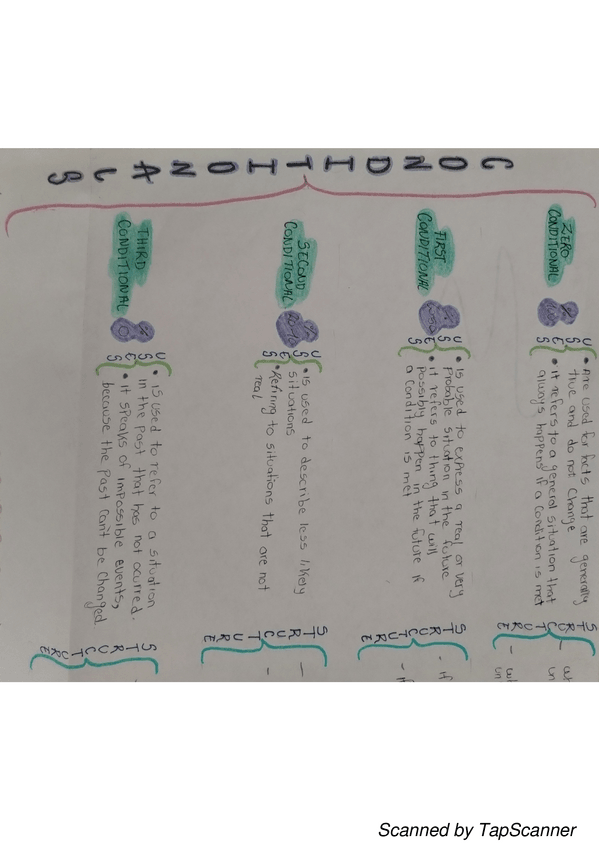 CONDITIONALS
ZERO
CONDITIONAL
USES
• Are used for facts that are generally
true and do not change
• it refers to a general situation that
always happens if a condition is met
STRUCTURE
FIRST
CONDITIONAL
USES
• is used to express a real or very
probable situation in the future
• it refers to thing that will
possibly happen in the future if
a condition is met
STRUCTURE
- if
SECOND
CONDITIONAL
USES
• is used to describe less likely
situations
• Refiring to situations that are not
real
STRUCTURE
THIRD
CONDITIONAL
USES
• is used to refer to a situation
in the past that has not ocurred.
• it speaks of impossible events,
because the past can't be changed
STRUCTURE
Scanned by TapScanner